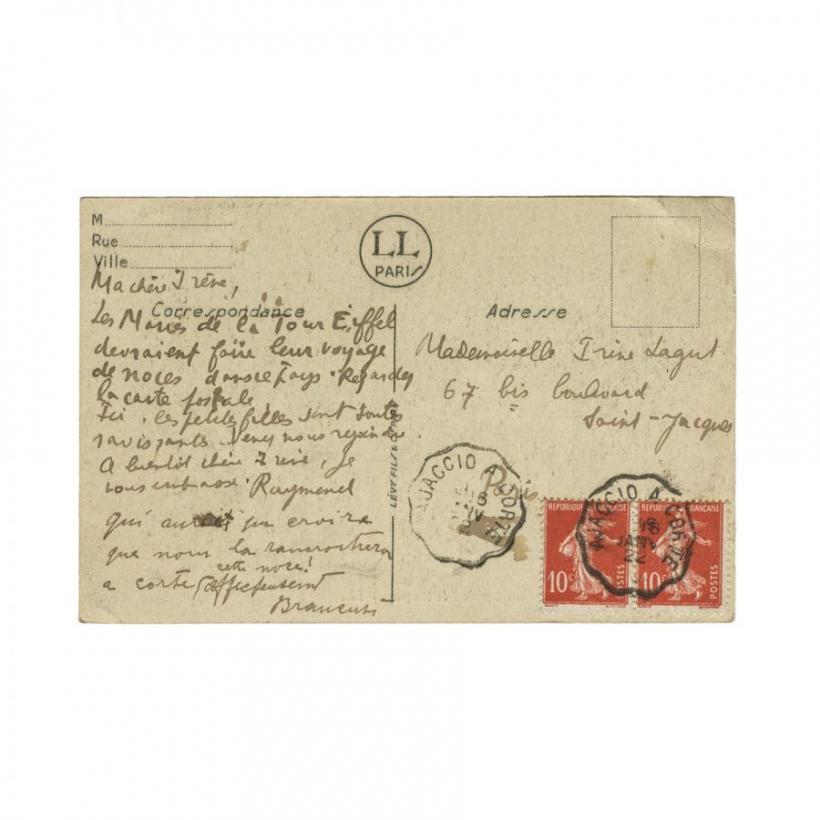 M
Rue
Ville
LL
PARIS
Correspondance
Adresse
Ma chère Irène,
Les Mariés de la Tour Eiffel
devraient faire leur voyage
de noces dans ce Pays. Regardez
la carte postale.
Ici, les petites filles sont toutes
ravissantes. Venez nous rejoindre.
A bientôt chère Irène, je
vous embrasse. Raymond
qui aurait pu croire
que nous la rancrocherons
cette noce!
a corte affectueusement
Brancusi
LÉVY FILS &
Mademoiselle Irène Lagut
67 bis boulevard
Saint-Jacques
Paris
AJACCIO A CORTE
18
AJACCIO A CORTE
18
JANV
22
REPUBLIQUE FRANÇAISE
10c POSTES
REPUBLIQUE FRANÇAISE
10c POSTES